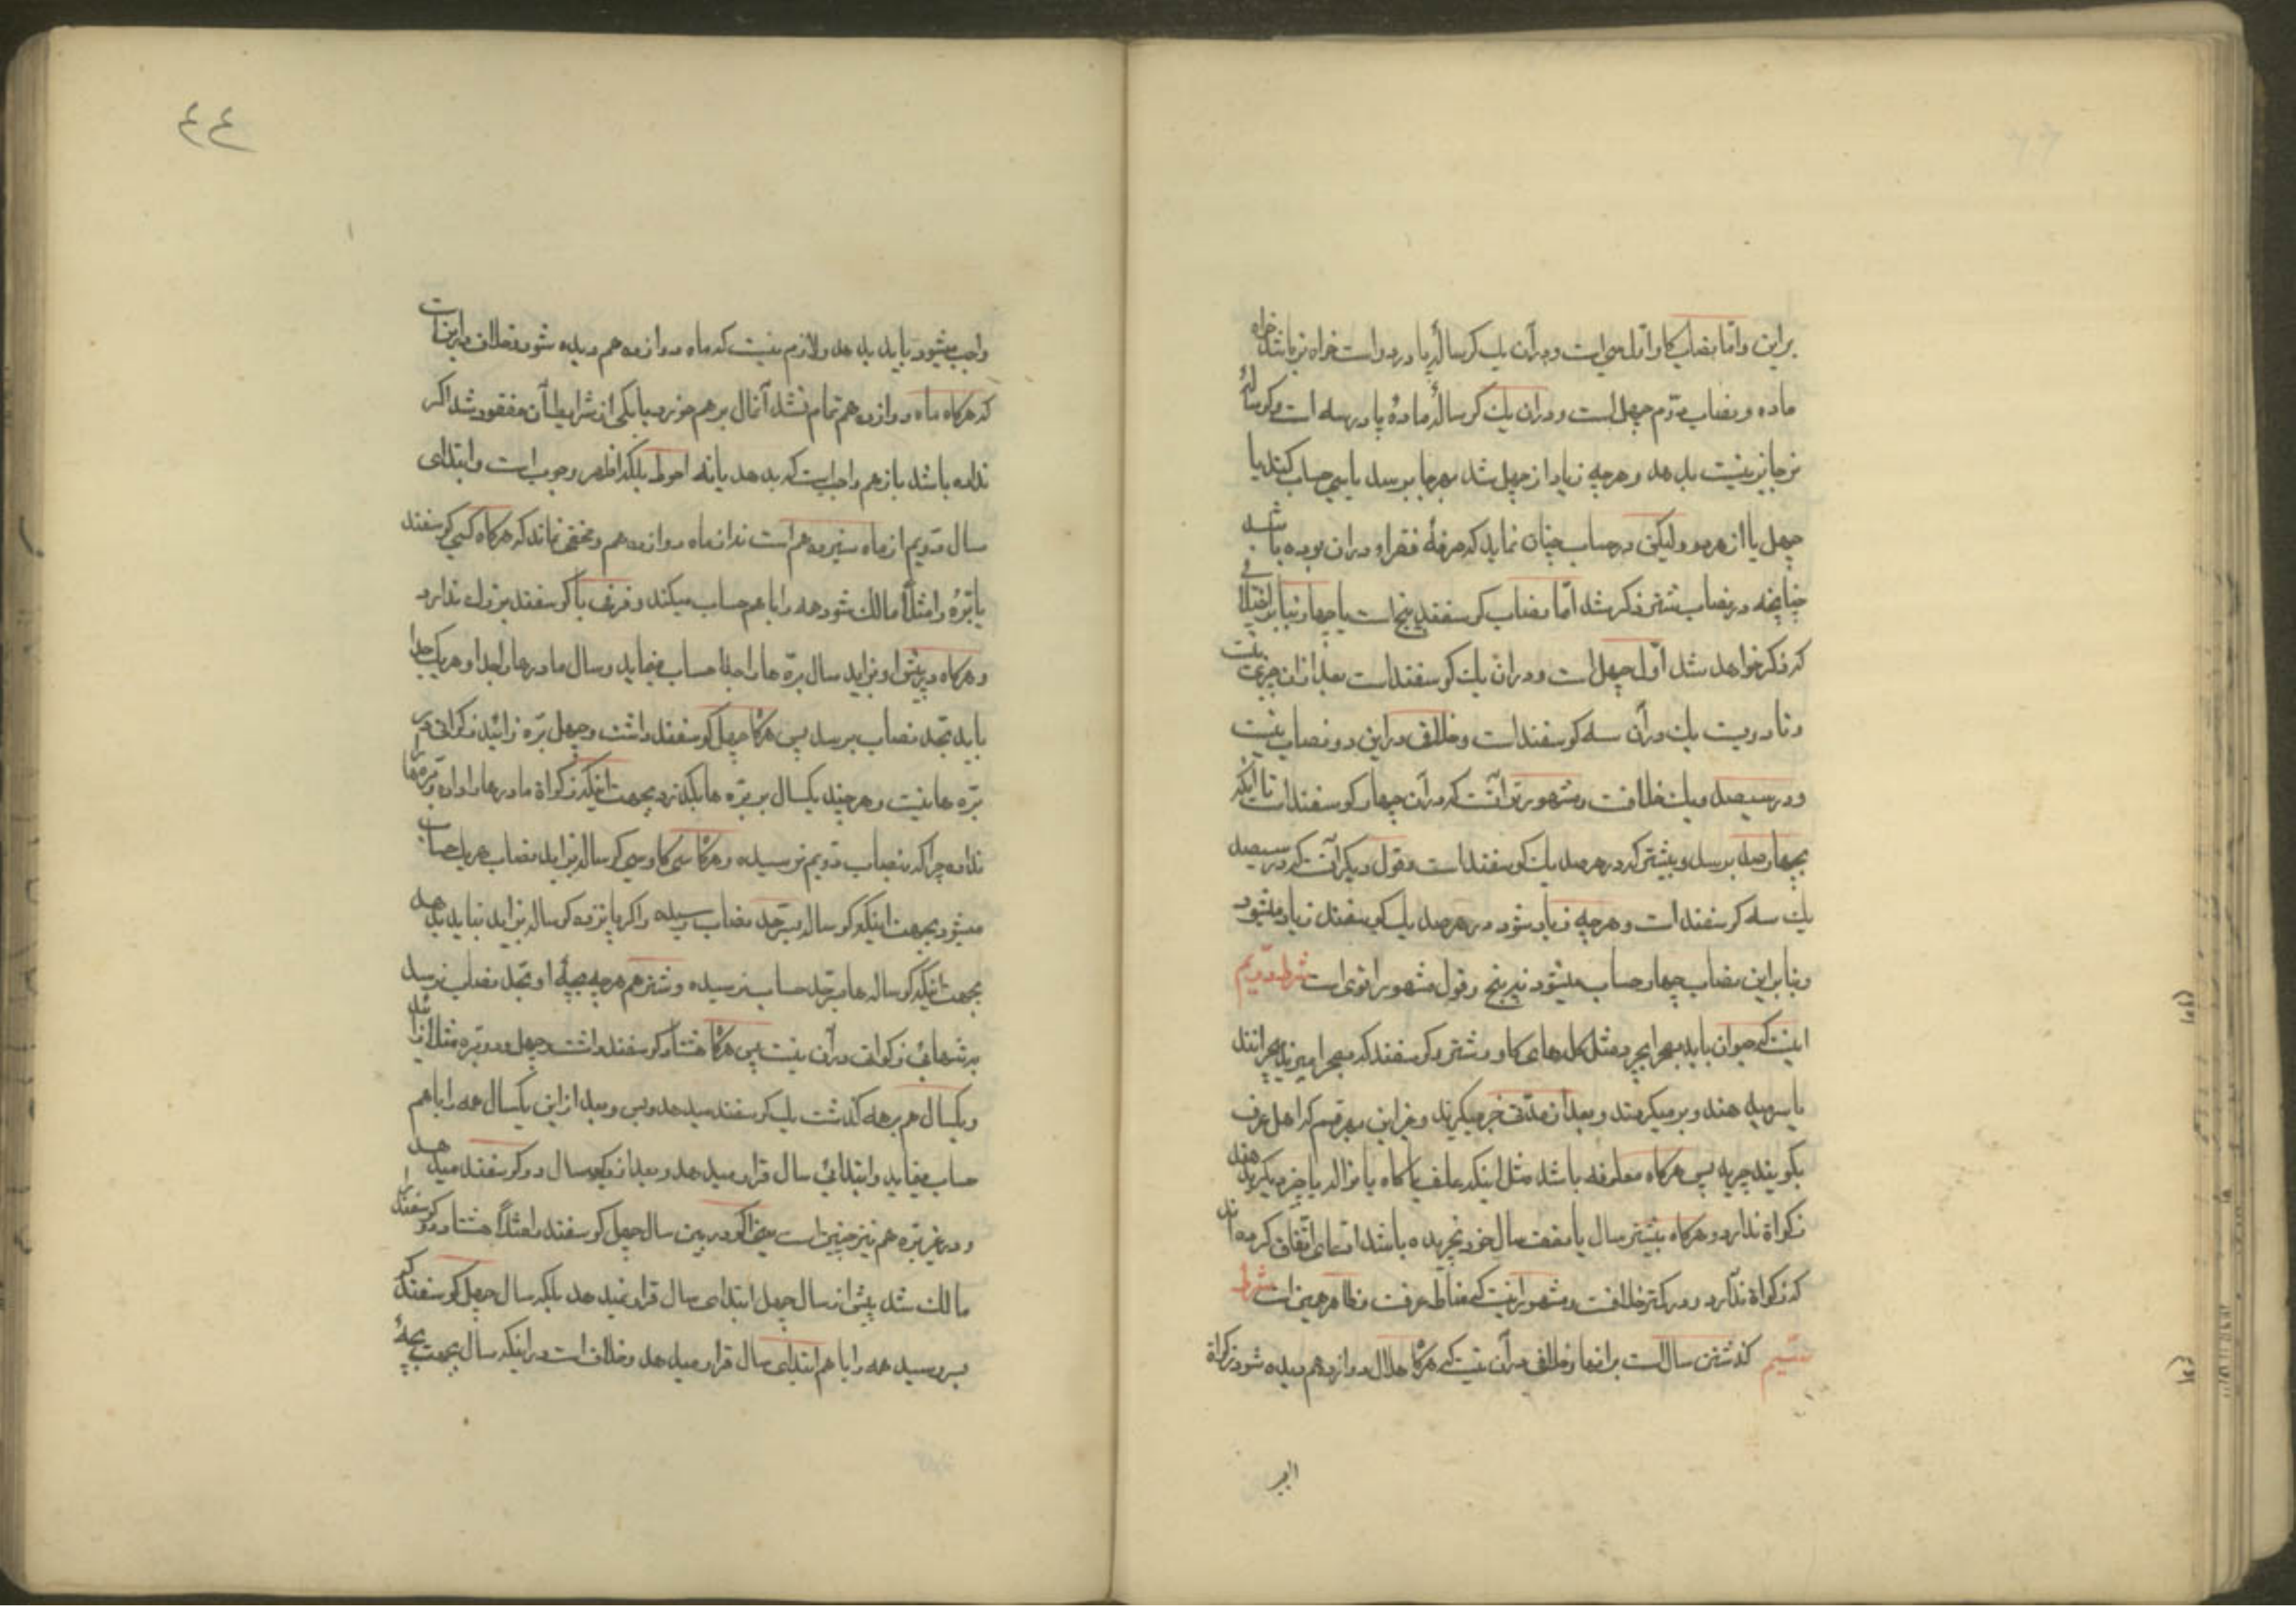 براین و اما نصاب کاو اول سی است و در آن یک کوساله پا در دو است خواه نر باشد خواه
ماده و نصاب دویم چهل است و در آن یک کوسالهٔ مادهٔ پا در سه است و کوسالهٔ
نر جایز نیست بدهد و هر چه زیاد از چهل شد بهر جا برسد یا سی حساب کنند یا
چهل یا از هر دو ولیکن در حساب چنان نماید که صرفهٔ فقرا در آن بوده باشد
چنانچه در نصاب شتر ذکر شد اما نصاب کوسفند پنج است یا چهار بنا بر اختلافی
که ذکر خواهد شد اول چهل است و در آن یک کوسفند است بعد از آن صد و بیست
و تا دویست یک در آن سه کوسفند است و خلاف در این دو نصاب نیست
و در سیصد و یک خلافست و مشهور تر آنست که در آن چهار کوسفند است تا آنکه
بچهارصد برسد و بیشتر که در هر صد یک کوسفند است و قول دیکر آنست که در سیصد
یک سه کوسفند است و هر چه زیاد شود در هر صد یک کوسفند زیاد میشود
و بنا براین نصاب چهار حساب میشود نه پنج و قول مشهور اقوی است شرط دویم
اینست که حیوان باید بصحرا بچرد مثل کله های کاو و شتر و کوسفند که بصحرا میبرند میچرانند
یا سر میدهند و بر میکردند و بعد از مدتی خبر میکیرند و غیر این بهر قسم که اهل عرف
بکویند چریده پس هرکاه معلوفه باشد مثل اینکه علف یا کاه یا نواله یا خرید بکیرند بدهند
زکواة ندارد و هرکاه بیشتر سال یا نصف سال خود نچریده باشد ادعای اتفاق کرده اند
که زکواة ندارد و در کمتر خلافست و مشهور اینست که مناط عرفست و ظاهر همین است شرط
سیم کذشتن سال است بر آنها و خلافی در آن نیست که هرکاه هلال دوازدهم دیده شود زکواة
واجب میشود باید بدهد و لازم نیست که ماه دوازدهم دیده شود و خلاف در این است
که هرکاه ماه دوازدهم تمام نشد آن مال بر هم خورد یا یکی از شرایط آن مفقود شد اکر
نداده باشد باز هم واجب است که بدهد یا نه احوط بلکه اظهر وجوب است و ابتدای
سال دویم از ماه سیزدهم است نه از ماه دوازدهم و مخفی نماند که هرکاه کسی کوسفند
یا بره را مثلاً مالک شود همه را با هم حساب میکند و فرقی با کوسفند بزرک ندارد
و هرکاه در پیش او بزاید سال بره ها را جدا حساب مینماید و سال مادرها را جدا و هر یک جدا
باید بحد نصاب برسد پس هرکاه چهل کوسفند داشت و چهل بره زائید زکواتی در
بره ها نیست و هر چند یکسال بر بره ها بکذرد بجهت اینکه زکواة مادرها را داده و بره ها را
نداده چرا که بنصاب دویم نرسیده و هرکاه سی کاو سی کوساله بزاید نصاب هر یک حساب
میشود بجهت اینکه کوساله بحد نصاب رسیده و اکر پانزده کوساله بزاید نباید بدهد
بجهت اینکه کوساله ها بحد حساب نرسیده و شتر هم هر چه بچهٔ او بحد نصاب نرسد
بتنهائی زکواتی در آن نیست پس هرکاه هشتاد کوسفند داشت و چهل و دو بره مثلا زائید
و یکسال هم بر همه کذشت یک کوسفند میدهد و بس و بعد از این یکسال همه را با هم
حساب مینماید و ابتدای سال قرار میدهد و بعد از یکسال دو کوسفند میدهد
و در غیر بره هم نیز چنین است یعنی اکر در بین سال چهل کوسفند مثلاً هشتاد و دو کوسفند را
مالک شد پیش از سال چهل ابتدای سال قرار نمیدهد بلکه سال چهل کوسفند که
بسر رسید همه را با هم ابتدای سال قرار میدهد و خلاف است در اینکه سال بجهت بچهٔ
٤٤